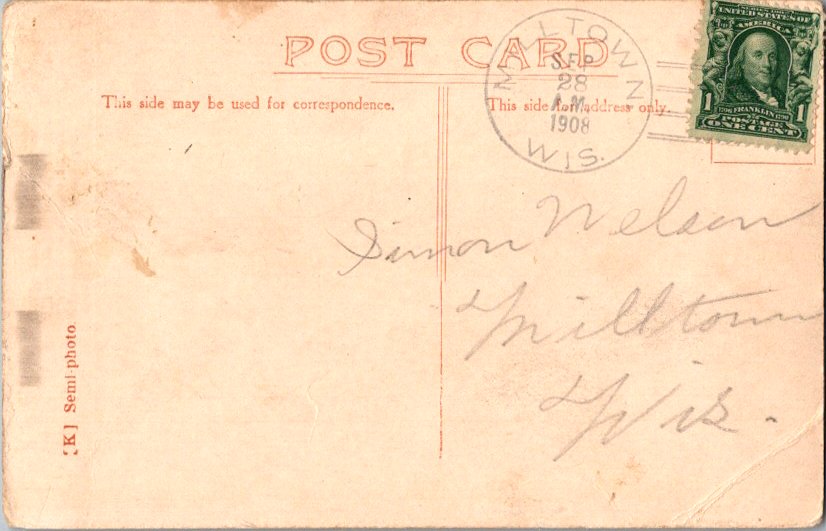 POST CARD
This side may be used for correspondence.
This side for address only.
MILLTOWN
SEP
28
A.M.
1908
WIS.
UNITED STATES OF
AMERICA
1 FRANKLIN 1
POSTAGE
ONE CENT
Simon Nelson
Milltown
Wis.
[K] Semi-photo.